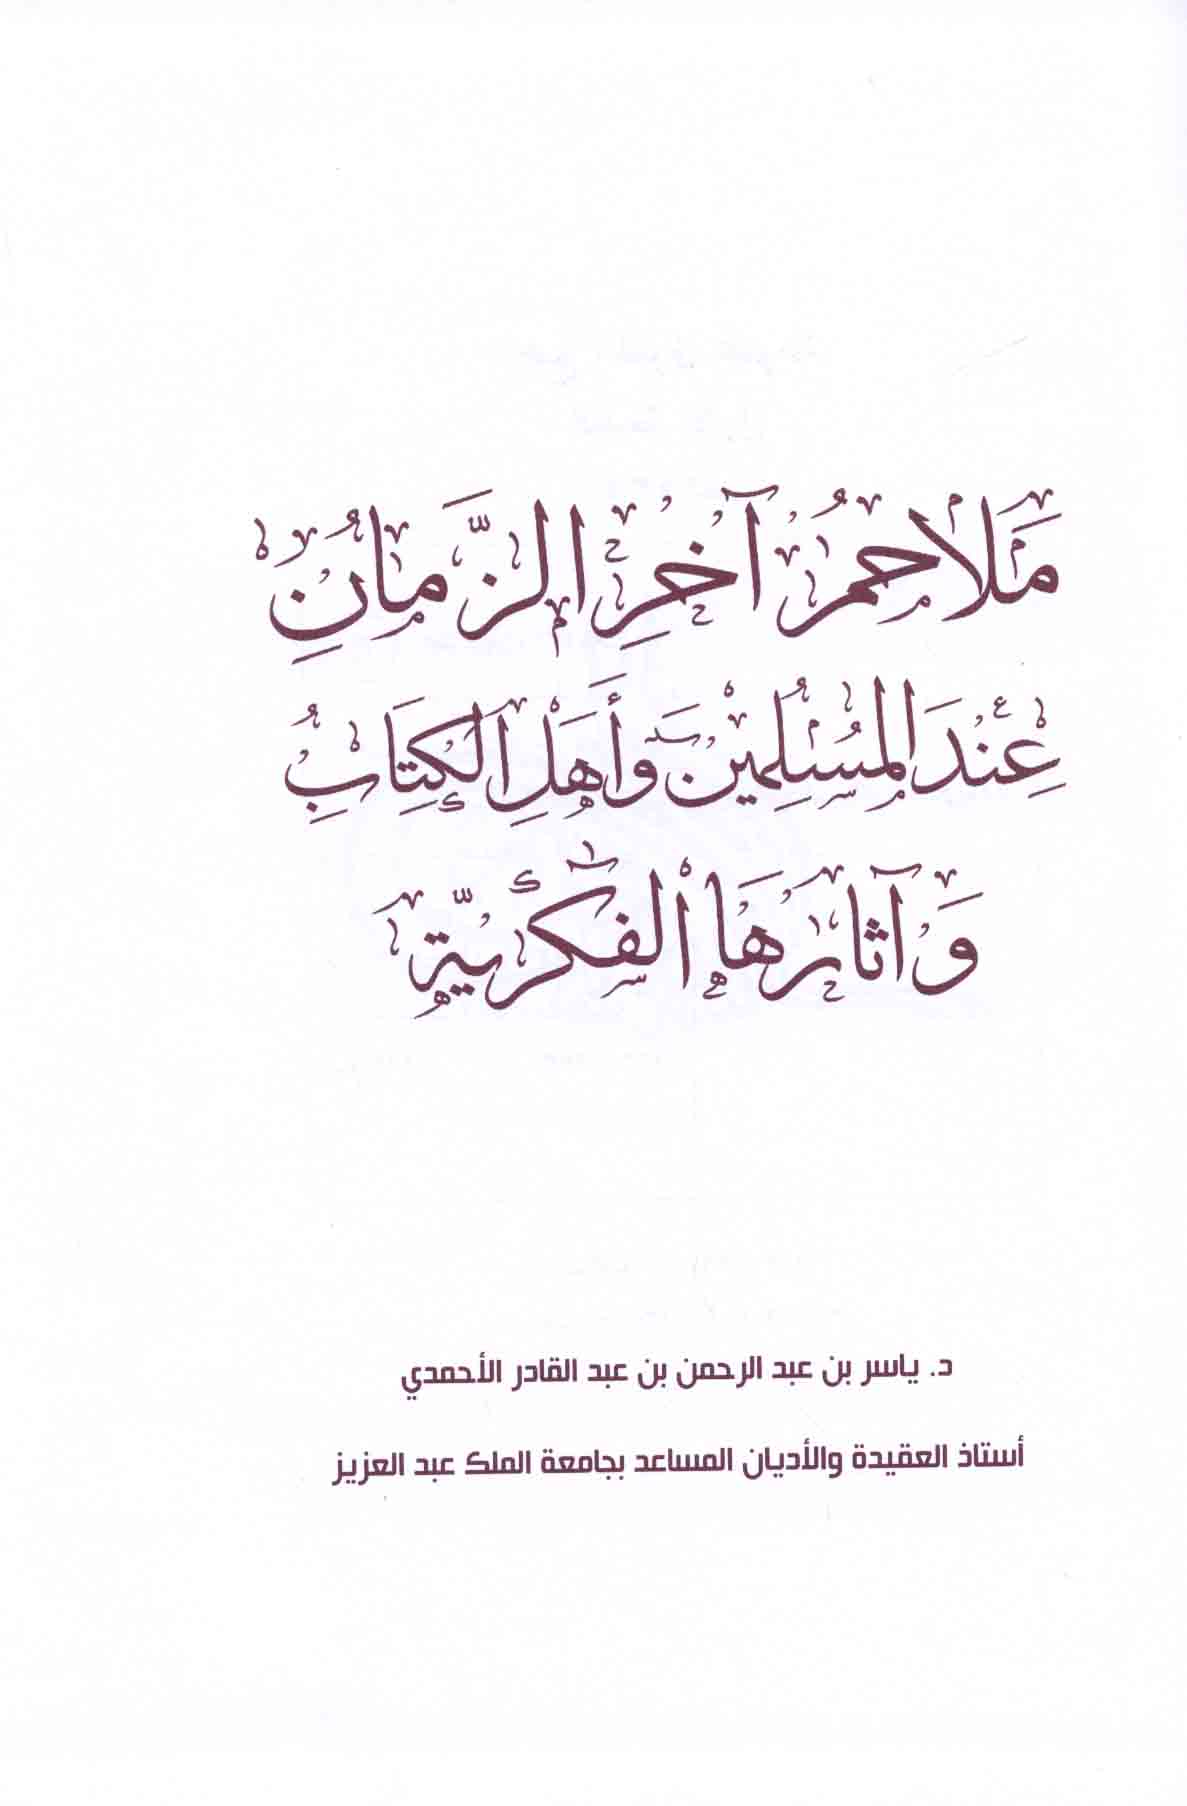 مَلَاحِمُ آخِرِ الزَّمَانِ
عِنْدَ المُسْلِمِيْنَ وَأَهْلِ الكِتَابِ
وَآثَارُهَا الفِكْرِيَّة
د. ياسر بن عبد الرحمن بن عبد القادر الأحمدي
أستاذ العقيدة والأديان المساعد بجامعة الملك عبد العزيز